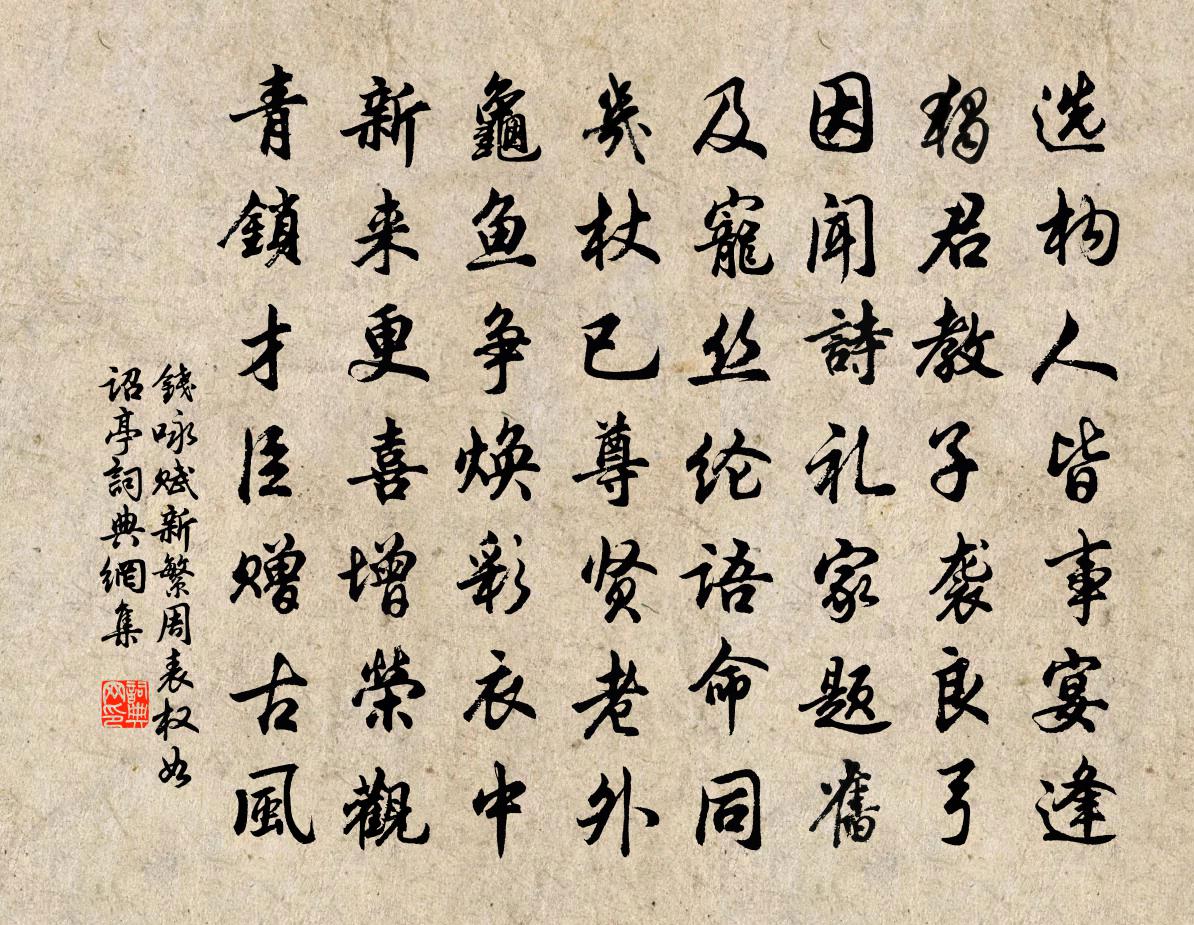 选构人皆事宴逢
獨君教子袭良弓
因闻詩礼家题舊
及寵丝纶語命同
幾杖已尊贤老外
龜鱼争焕彩衣中
新来更喜增榮觀
青鎖才臣赠古風
錢咏赋新繁周表权如
诏亭詞典網集
詞典网印